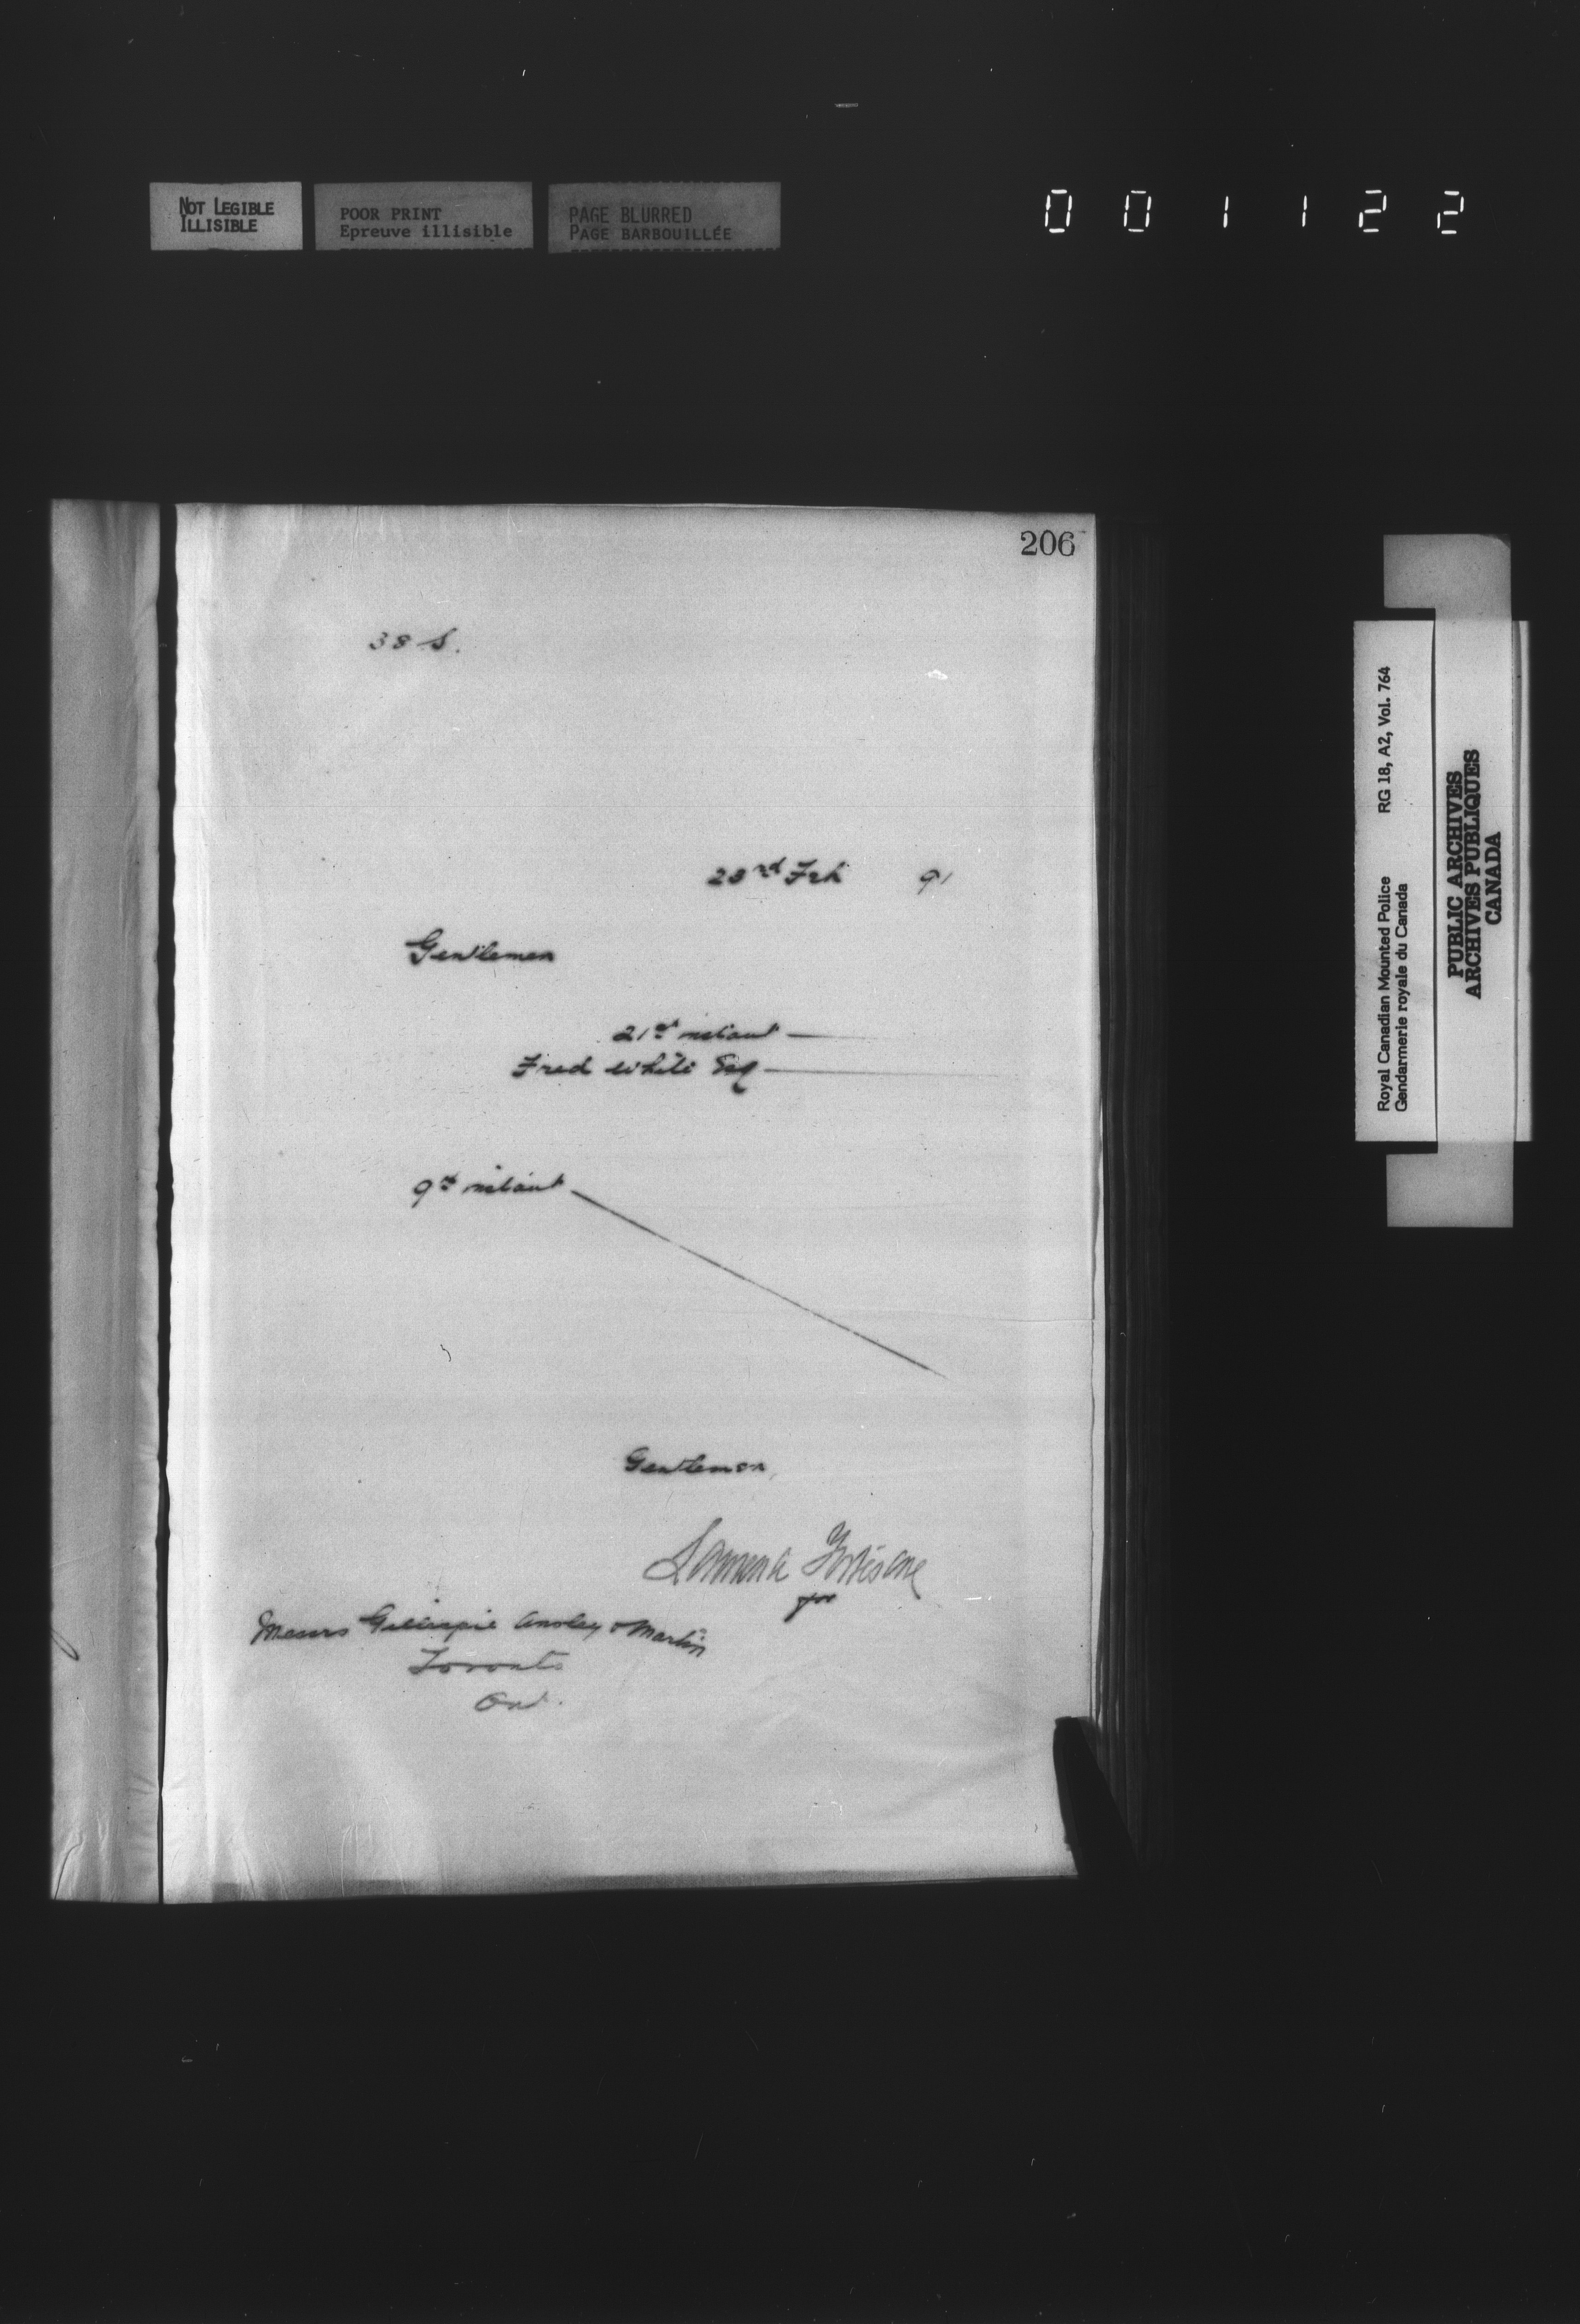 NOT LEGIBLE
ILLISIBLE
POOR PRINT
Epreuve illisible
PAGE BLURRED
PAGE BARBOUILLÉE
001122
206
38 S.
23rd Feb 91
Gentlemen
21st instant
Fred White Esq
9th instant
Gentlemen,
for
Messrs Gillespie Ansley & Martin
Toronto
Ont.
Royal Canadian Mounted Police RG 18, A2, Vol. 764
Gendarmerie royale du Canada
PUBLIC ARCHIVES
ARCHIVES PUBLIQUES
CANADA